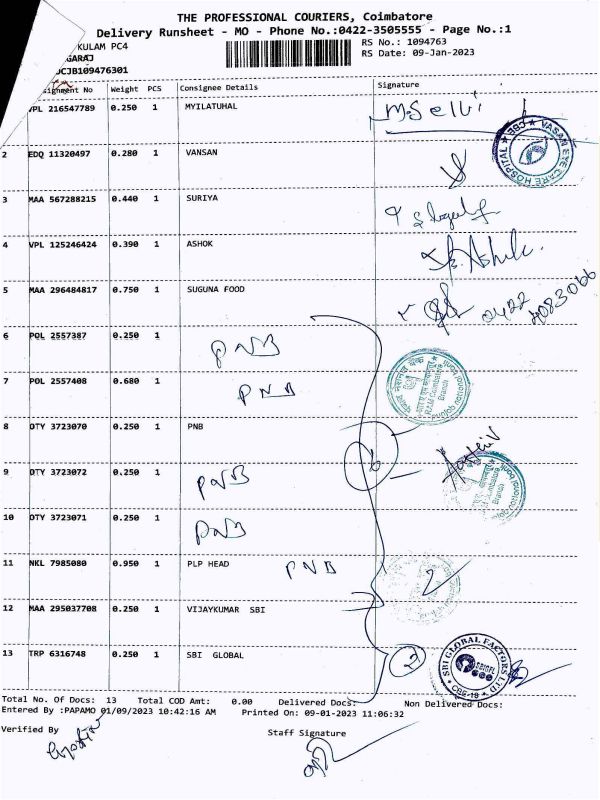 THE PROFESSIONAL COURIERS, Coimbatore
Delivery Runsheet - MO - Phone No.:0422-3505555 - Page No.:1
KULAM PC4
GARAJ
OCJB109476301
RS No.: 1094763
RS Date: 09-Jan-2023
signment No Weight PCS Consignee Details Signature
VPL 216547789 0.250 1 MYILATUHAL M.Selvi
VASAN EYE CARE HOSPITAL ★ CBE ★
2 EDQ 11320497 0.280 1 VANSAN
3 MAA 567288215 0.440 1 SURIYA
4 VPL 125246424 0.390 1 ASHOK Ashok.
5 MAA 296484817 0.750 1 SUGUNA FOOD 0422
6 POL 2557387 0.250 1 PNB
7 POL 2557408 0.680 1 PNB
Coimbatore
Branch
punjab national bank
8 OTY 3723070 0.250 1 PNB
6
9 OTY 3723072 0.250 1 PNB
Coimbatore
Branch
10 OTY 3723071 0.250 1 PNB
11 NKL 7985080 0.950 1 PLP HEAD PNB
2
12 MAA 295037708 0.250 1 VIJAYKUMAR SBI
13 TRP 6316748 0.250 1 SBI GLOBAL 2
SBI GLOBAL FACTORS LTD
SBIGFL
CBE-18
Total No. Of Docs: 13 Total COD Amt: 0.00 Delivered Docs: Non Delivered Docs:
Entered By :PAPAMO 01/09/2023 10:42:16 AM Printed On: 09-01-2023 11:06:32
Verified By Staff Signature